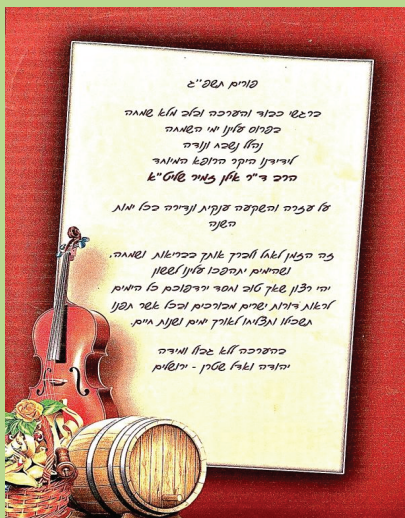 פורים תשפ"ג
ברגשי כבוד והערכה ובלב מלא שמחה
בפרוס עלינו ימי השמחה
נהלל נשבח ונודה
לידידנו היקר הרופא המיוחד
הרב ד"ר אילן זמיר שליט"א
על עזרה והשקעה ענקית ונדירה בכל ימות
השנה
זה הזמן לאחל ולברך אותך בבריאות ושמחה,
ושהימים יתהפכו עלינו לששון
יהי רצון שאך טוב וחסד ירדפוכם כל הימים
לראות דורות ישרים מבורכים ובכל אשר תפנו
תשכילו ותצליחו לאורך ימים ושנות חיים.
בהערכה ללא גבול ומידה
יהודה ואדל שטרן - ירושלים